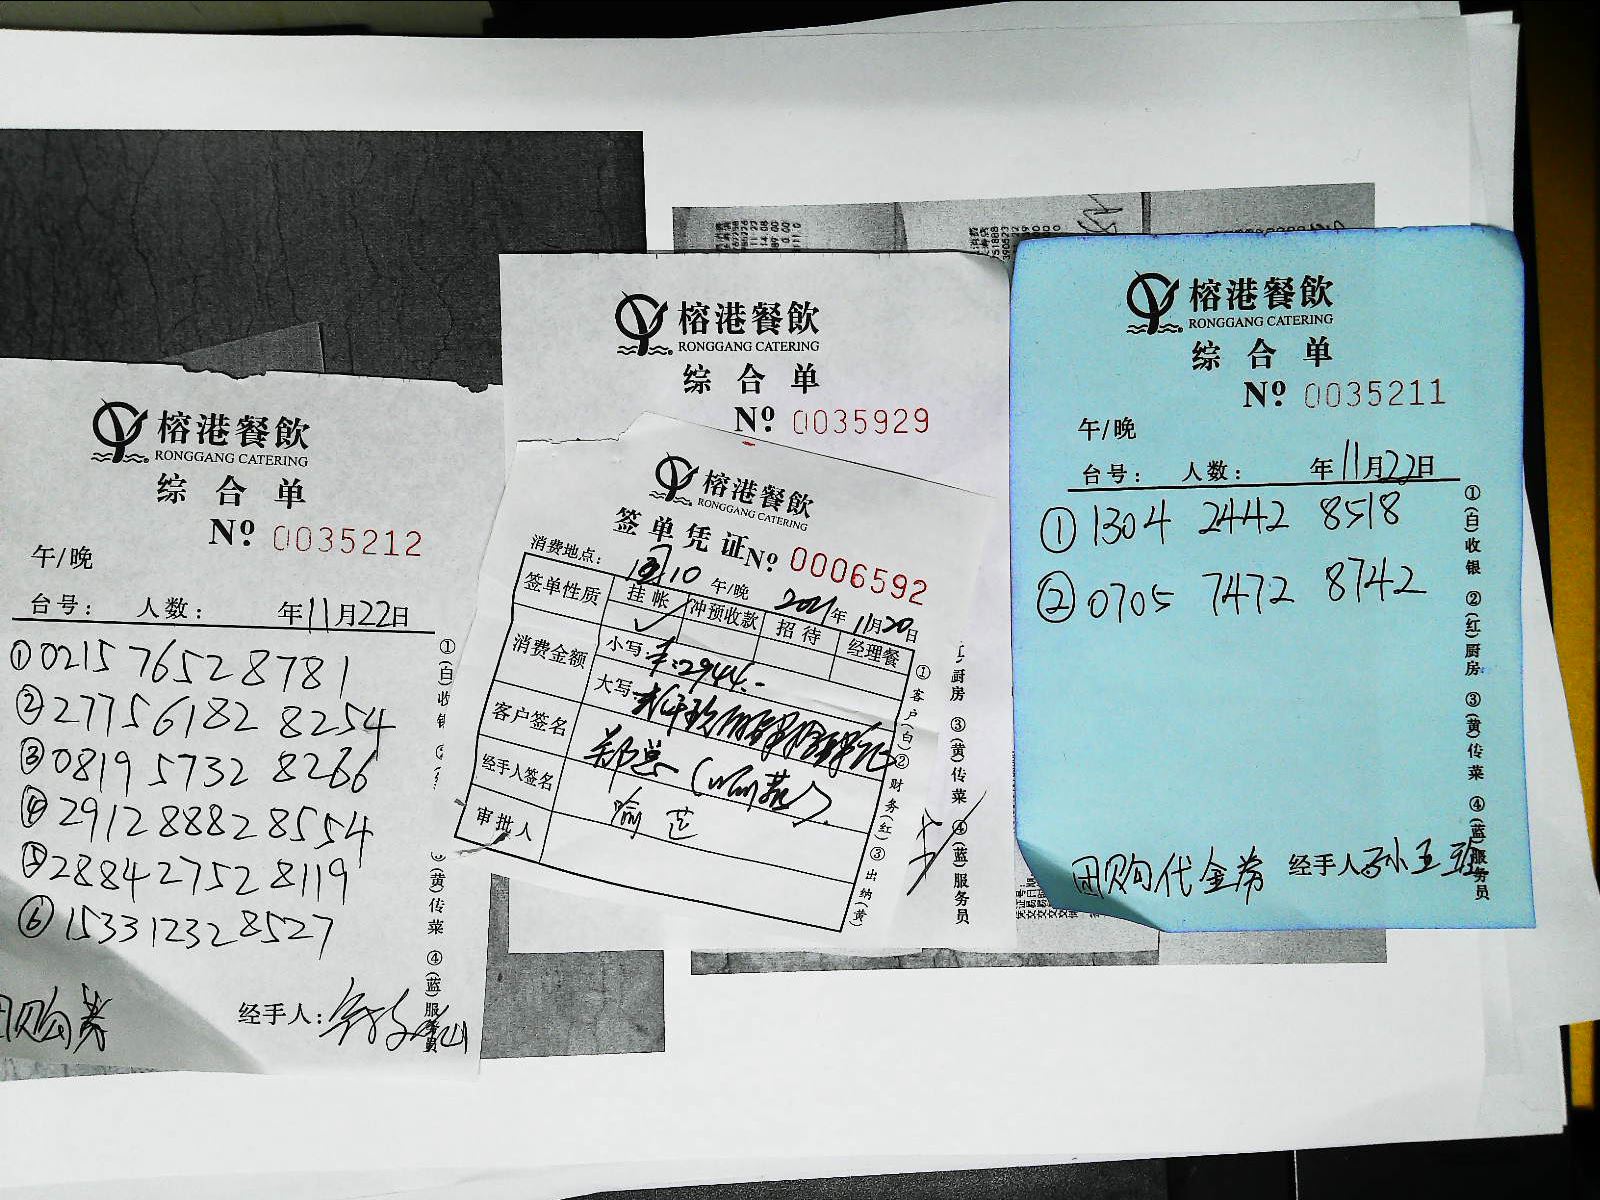 榕港餐飲
RONGGANG CATERING
综合单
Nº 0035212
午/晚
台号： 人数： 年11月22日
①0215 7652 8781
②2775 6182 8254
③0819 5732 8266
④2912 8882 8554
⑤2884 2752 8119
⑥1533 1232 8527
团购券 经手人：
①(白)收银
(黄)传菜 ④(蓝)服务员
榕港餐飲
RONGGANG CATERING
综合单
Nº 0035929
厨房 ③(黄)传菜 ④(蓝)服务员
榕港餐飲
RONGGANG CATERING
签单凭证 Nº 0006592
消费地点： 10 午/晚 2021年11月20日
签单性质 挂帐 ✓ 冲预收款 招待 经理餐
消费金额 小写：¥:2944.-
大写：
客户签名 郑总
经手人签名 喻芷
审批人
①客户(白)②财务(红)③出纳(黄)
榕港餐飲
RONGGANG CATERING
综合单
Nº 0035211
午/晚
台号： 人数： 年11月22日
①1304 2442 8518
②0705 7472 8742
团购代金券 经手人
①(白)收银 ②(红)厨房 ③(黄)传菜 ④(蓝)服务员